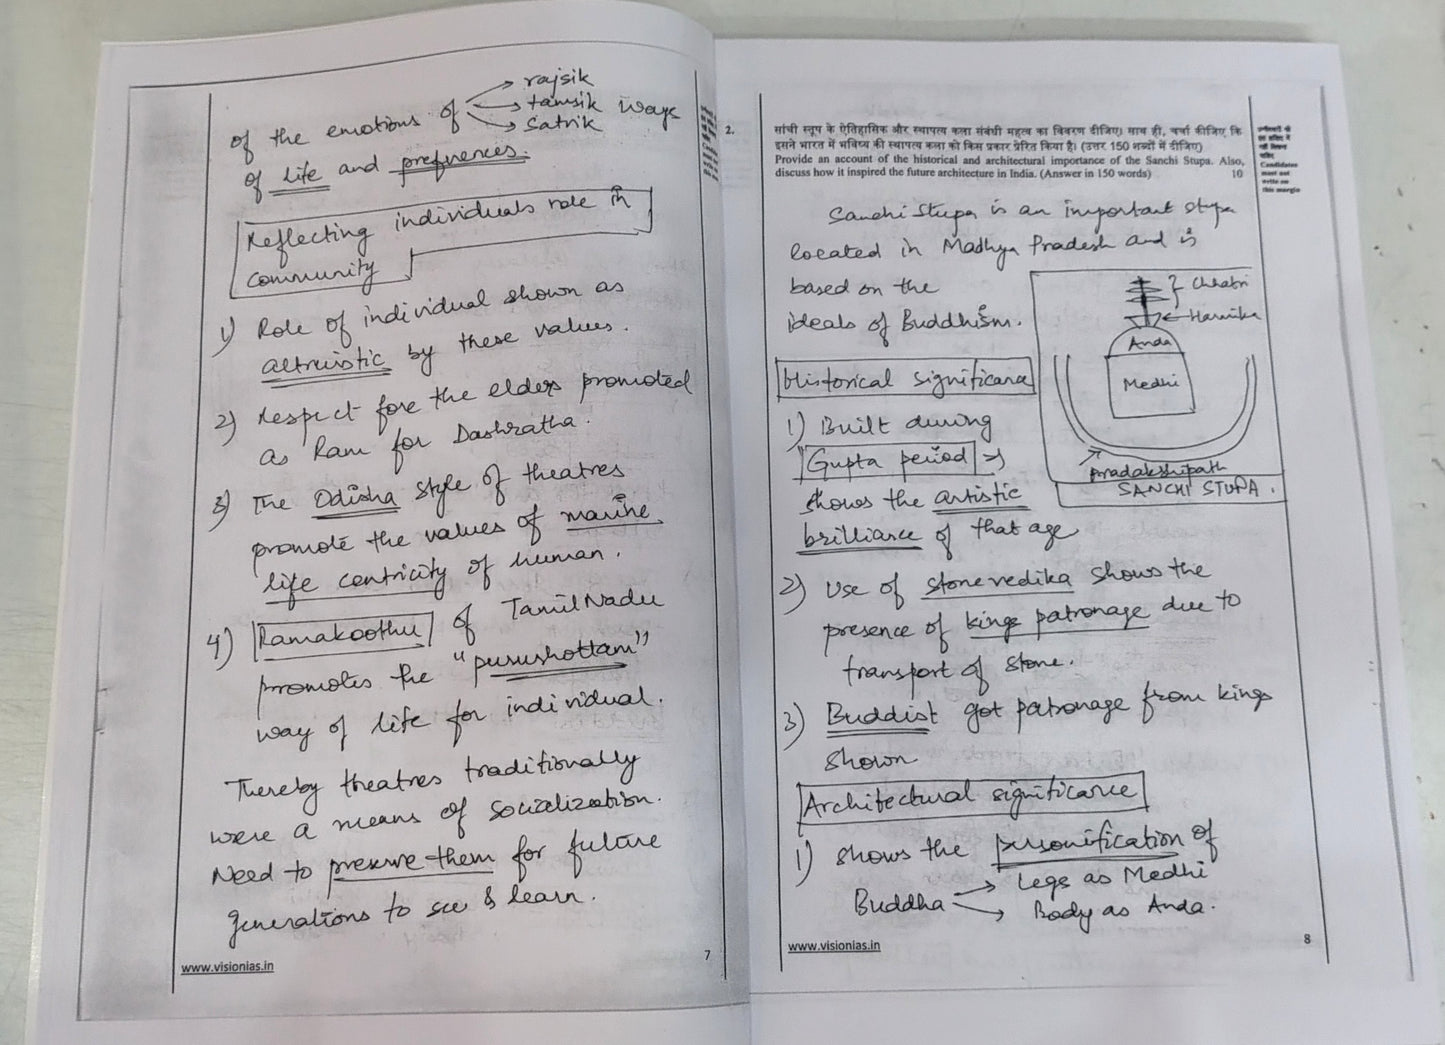 of the emotions of → rajsik
→ tamsik ways
→ Satvik
of life and preferences.
Reflecting individuals role in
community
1) Role of individual shown as
altruistic by these values.
2) Respect fore the elders promoted
as Ram for Dashratha.
3) The Odisha style of theatres
promote the values of marine
life centricity of human.
4) Ramakoothu of Tamil Nadu
promotes the "purushottam"
way of life for individual.
Thereby theatres traditionally
were a means of socialization.
Need to preserve them for future
generations to see & learn.
www.visionias.in
7
2.
सांची स्तूप के ऐतिहासिक और स्थापत्य कला संबंधी महत्व का विवरण दीजिए। साथ ही, चर्चा कीजिए कि
इसने भारत में भविष्य की स्थापत्य कला को किस प्रकार प्रेरित किया है। (उत्तर 150 शब्दों में दीजिए)
Provide an account of the historical and architectural importance of the Sanchi Stupa. Also,
discuss how it inspired the future architecture in India. (Answer in 150 words) 10
Candidates
must not
write on
this margin
Sanchi Stupa is an important stupa
located in Madhya Pradesh and is
based on the
ideals of Buddhism.
Chhatri
Harmika
Anda
Medhi
pradakshipath
SANCHI STUPA.
Historical significance
1) Built during
"Gupta period ⇒
shows the artistic
brilliance of that age
2) Use of stone vedika shows the
presence of kings patronage due to
transport of stone.
3) Buddist got patronage from kings
shown
Architectural significance
1) shows the personification of
Buddha → Legs as Medhi
→ Body as Anda.
www.visionias.in
8